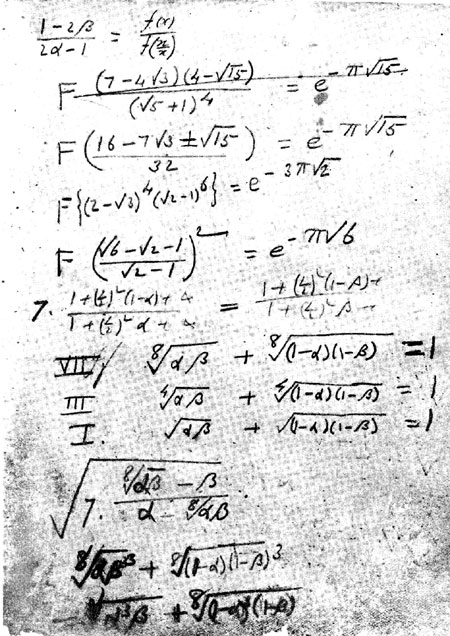 (1-2β)/(2α-1) = f(x)/f(x/x)
F (7-4√3)(4-√15)/(√5+1)^4 = e^{-π√15}
F ((16-7√3 ± √15)/32) = e^{-π√15}
F {(2-√3)^4 (√2-1)^6} = e^{-3π√2}
F ((√6-√2-1)/(√2-1))^2 = e^{-π√6}
7. (1+(½)²(1-α)+)/(1+(½)²α+) = (1+(½)²(1-β)+)/(1+(½)²β+)
VII ⁸√(αβ) + ⁸√((1-α)(1-β)) = 1
III ⁴√(αβ) + ⁴√((1-α)(1-β)) = 1
I. √(αβ) + √((1-α)(1-β)) = 1
√(7. (⁸√(αβ) - β)/(α - ⁸√(αβ)))
⁸√(αβ³) + ⁸√((1-α)(1-β)³)
= ⁸√(α³β) + ⁸√((1-α)³(1-β))